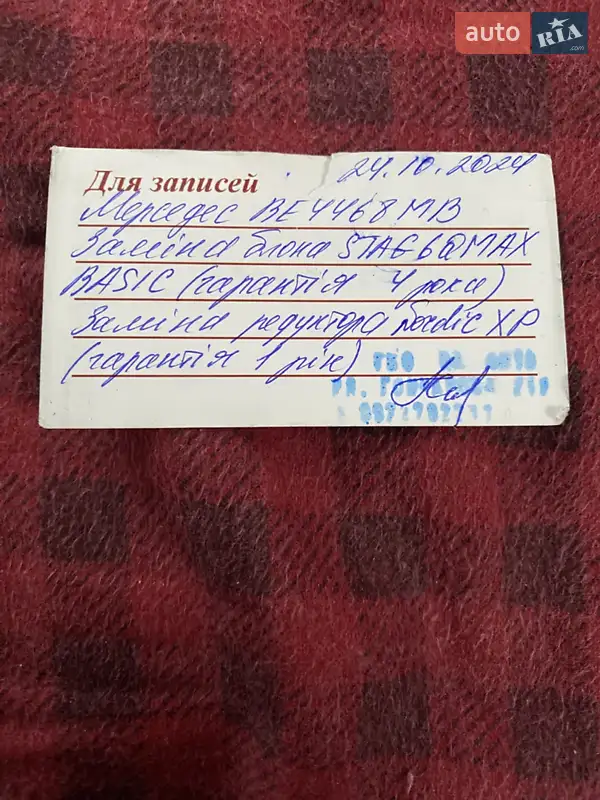 auto RIA .com
Для записей 24.10.2024
Мерседес ВЕ4468МВ
Заміна блока STAG 6 QMAX
BASIC (гарантія 4 роки)
Заміна редуктора Nordic XP
(гарантія 1 рік)